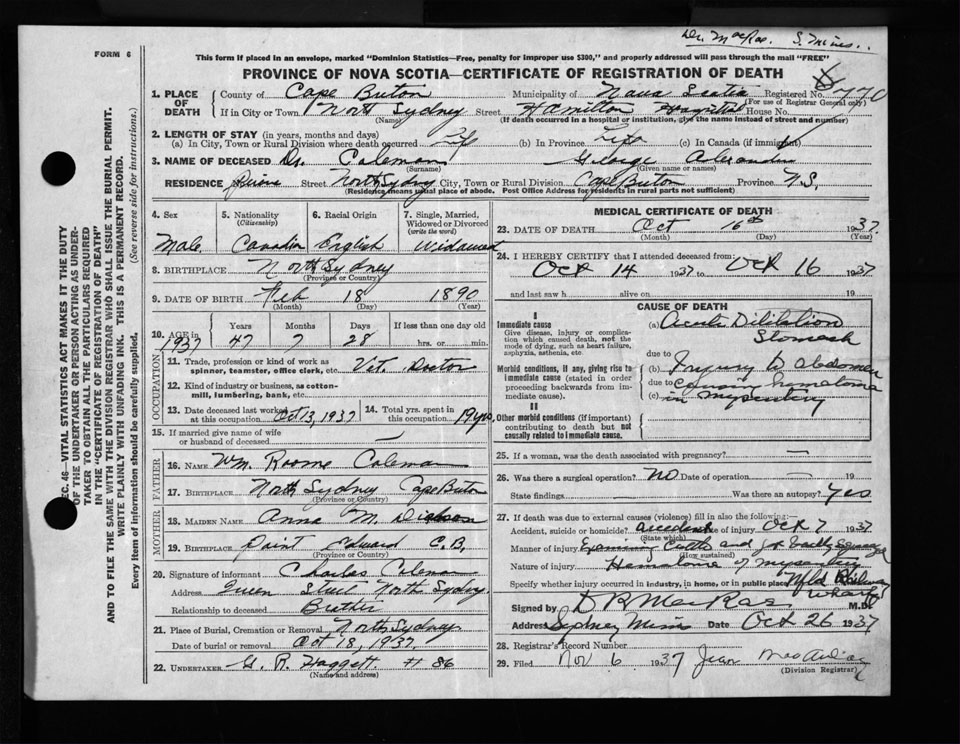 Dr. MacRae. S. Mines..
FORM 6
This form if placed in an envelope, marked "Dominion Statistics—Free, penalty for improper use $300," and properly addressed will pass through the mail "FREE"
PROVINCE OF NOVA SCOTIA—CERTIFICATE OF REGISTRATION OF DEATH
1. PLACE OF DEATH County of Cape Breton Municipality of Nova Scotia Registered No. 770
(For use of Registrar General only)
If in City or Town North Sydney Street Hamilton Hospital House No.
(Name) (If death occurred in a hospital or institution, give the name instead of street and number)
2. LENGTH OF STAY (in years, months and days)
(a) In City, Town or Rural Division where death occurred Life (b) In Province Life (c) In Canada (if immigrant)
3. NAME OF DECEASED Dr. Coleman George Alexander
(Surname) (Given name or names)
RESIDENCE Street North Sydney City, Town or Rural Division Cape Breton Province N.S.
(Residence means usual place of abode. Post Office Address for residents in rural parts not sufficient)
4. Sex 5. Nationality (Citizenship) 6. Racial Origin 7. Single, Married, Widowed or Divorced (write the word)
Male Canadian English Widowed
8. BIRTHPLACE North Sydney
(Province or Country)
9. DATE OF BIRTH Feb 18 1890
(Month) (Day) (Year)
10. AGE in Years Months Days If less than one day old
1937 47 7 28 hrs. or min.
OCCUPATION
11. Trade, profession or kind of work as spinner, teamster, office clerk, etc. Vet. Doctor
12. Kind of industry or business, as cotton-mill, lumbering, bank, etc.
13. Date deceased last worked at this occupation Oct 3, 1937 14. Total yrs. spent in this occupation 19 yrs.
15. If married give name of wife or husband of deceased —
FATHER
16. NAME Wm. Roome Coleman
17. BIRTHPLACE North Sydney Cape Breton
(Province or Country)
MOTHER
18. MAIDEN NAME Anna M. Dickson
19. BIRTHPLACE Point Edward C.B.
(Province or Country)
20. Signature of informant Charles Coleman
Address Queen Street North Sydney
Relationship to deceased Brother
21. Place of Burial, Cremation or Removal North Sydney
Date of burial or removal Oct 18, 1937.
22. UNDERTAKER G. R. Haggett # 86
(Name and address)
MEDICAL CERTIFICATE OF DEATH
23. DATE OF DEATH Oct 16th 1937
(Month) (Day) (Year)
24. I HEREBY CERTIFY that I attended deceased from:
Oct 14 1937 to Oct 16 1937
and last saw h alive on 19
CAUSE OF DEATH
I
Immediate cause
Give disease, injury or complication which caused death, not the mode of dying, such as heart failure, asphyxia, asthenia, etc.
(a) Acute Dilitation Stomach
due to
Morbid conditions, if any, giving rise to immediate cause (stated in order proceeding backwards from immediate cause).
(b) Injury to abdomen
due to causing hematoma
(c) in mysentery
II
Other morbid conditions (if important) contributing to death but not causally related to immediate cause.
25. If a woman, was the death associated with pregnancy? —
26. Was there a surgical operation? No Date of operation — 19
State findings — Was there an autopsy? Yes
27. If death was due to external causes (violence) fill in also the following:
Accident, suicide or homicide? accident Date of injury Oct 7 1937
(State which)
Manner of injury cattle and got badly
(How sustained)
Nature of injury Hematoma of mysentery
Specify whether injury occurred in industry, in home, or in public place Nfld Railway Wharf
Signed by D R MacRae M.D.
Address Sydney Mines Date Oct 26 1937
28. Registrar's Record Number
29. Filed Nov 6 1937 Jean
(Division Registrar)
SEC. 46—VITAL STATISTICS ACT MAKES IT THE DUTY
OF THE UNDERTAKER OR PERSON ACTING AS UNDER-
TAKER TO OBTAIN ALL THE PARTICULARS REQUIRED
IN THE "CERTIFICATE OF REGISTRATION OF DEATH"
AND TO FILE THE SAME WITH THE DIVISION REGISTRAR WHO SHALL ISSUE THE BURIAL PERMIT.
WRITE PLAINLY WITH UNFADING INK. THIS IS A PERMANENT RECORD.
Every item of information should be carefully supplied. (See reverse side for instructions.)